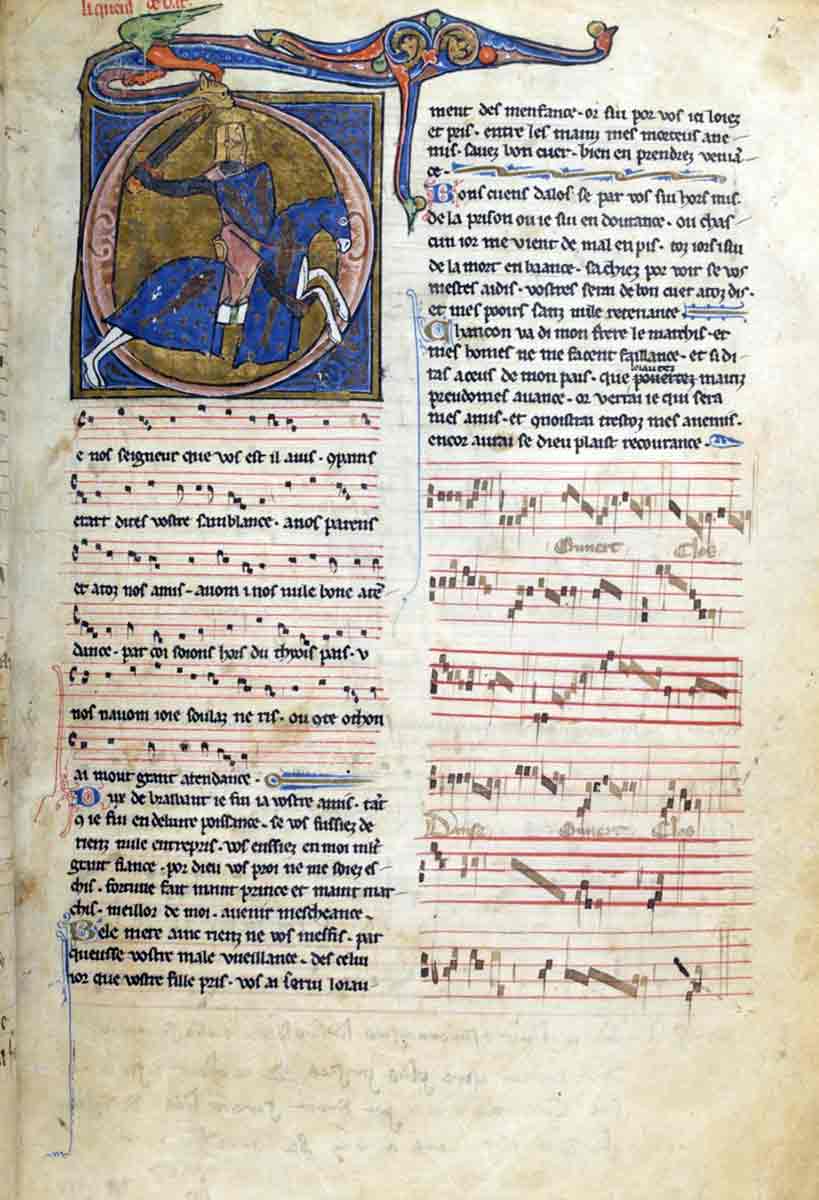 e nos seigneur que vos est il auis. 
etait dites vostre samblance. a nos parens
et a toz nos amis. auom i nos nule bone atē
dance. par coi soions hors du thyois pais. v
nos nauom ioie soulaz ne ris. ou qte othon
ai mout grant atendance.
Dux de brasbant ie fui ia vostre amis. tāt
q̄ ie fui en deliure poissance. se vos fussiez de
rienz nule entrepris. vos eussiez en moi mlt
grant fiance. por dieu vos proi ne me soiez es
chis. fortune fait maint prince et maint mar
chis. meillor de moi. auenir mescheance.
Bele mere ainc rienz ne vos meffis. par
queusse vostre male vueillance. des celui
ior que vostre fille pris. vos ai serui loiau
ment des menfance. or sui por vos ici loiez
et pris. entre les mainz mes morteus ane
mis. sauez bon cuer. bien en prendrez veniā
ce.
Bons cuens dalos se par vos sui hors mis.
de la prison ou ie sui en doutance. ou chas
cun ior me vient de mal en pis. toz iors i sui
de la mort en baance. sachiez por voir se vos
mestes aidis. vostres serai de bon cuer a toz dis.
et mes pooirs sanz nule retenance
Chancon va di mon frere le marchis. et
mes homes ne me facent faillance. et si di
loiautez
ras a ceus de mon pais. que pouertez mainz
preudomes auance. or verrai ie qui sera
mes amis. et quoistrai trestoz mes anemis.
encor aurai se dieu plaist recourance.
Ouuert Clos
Danse Ouuert Clos